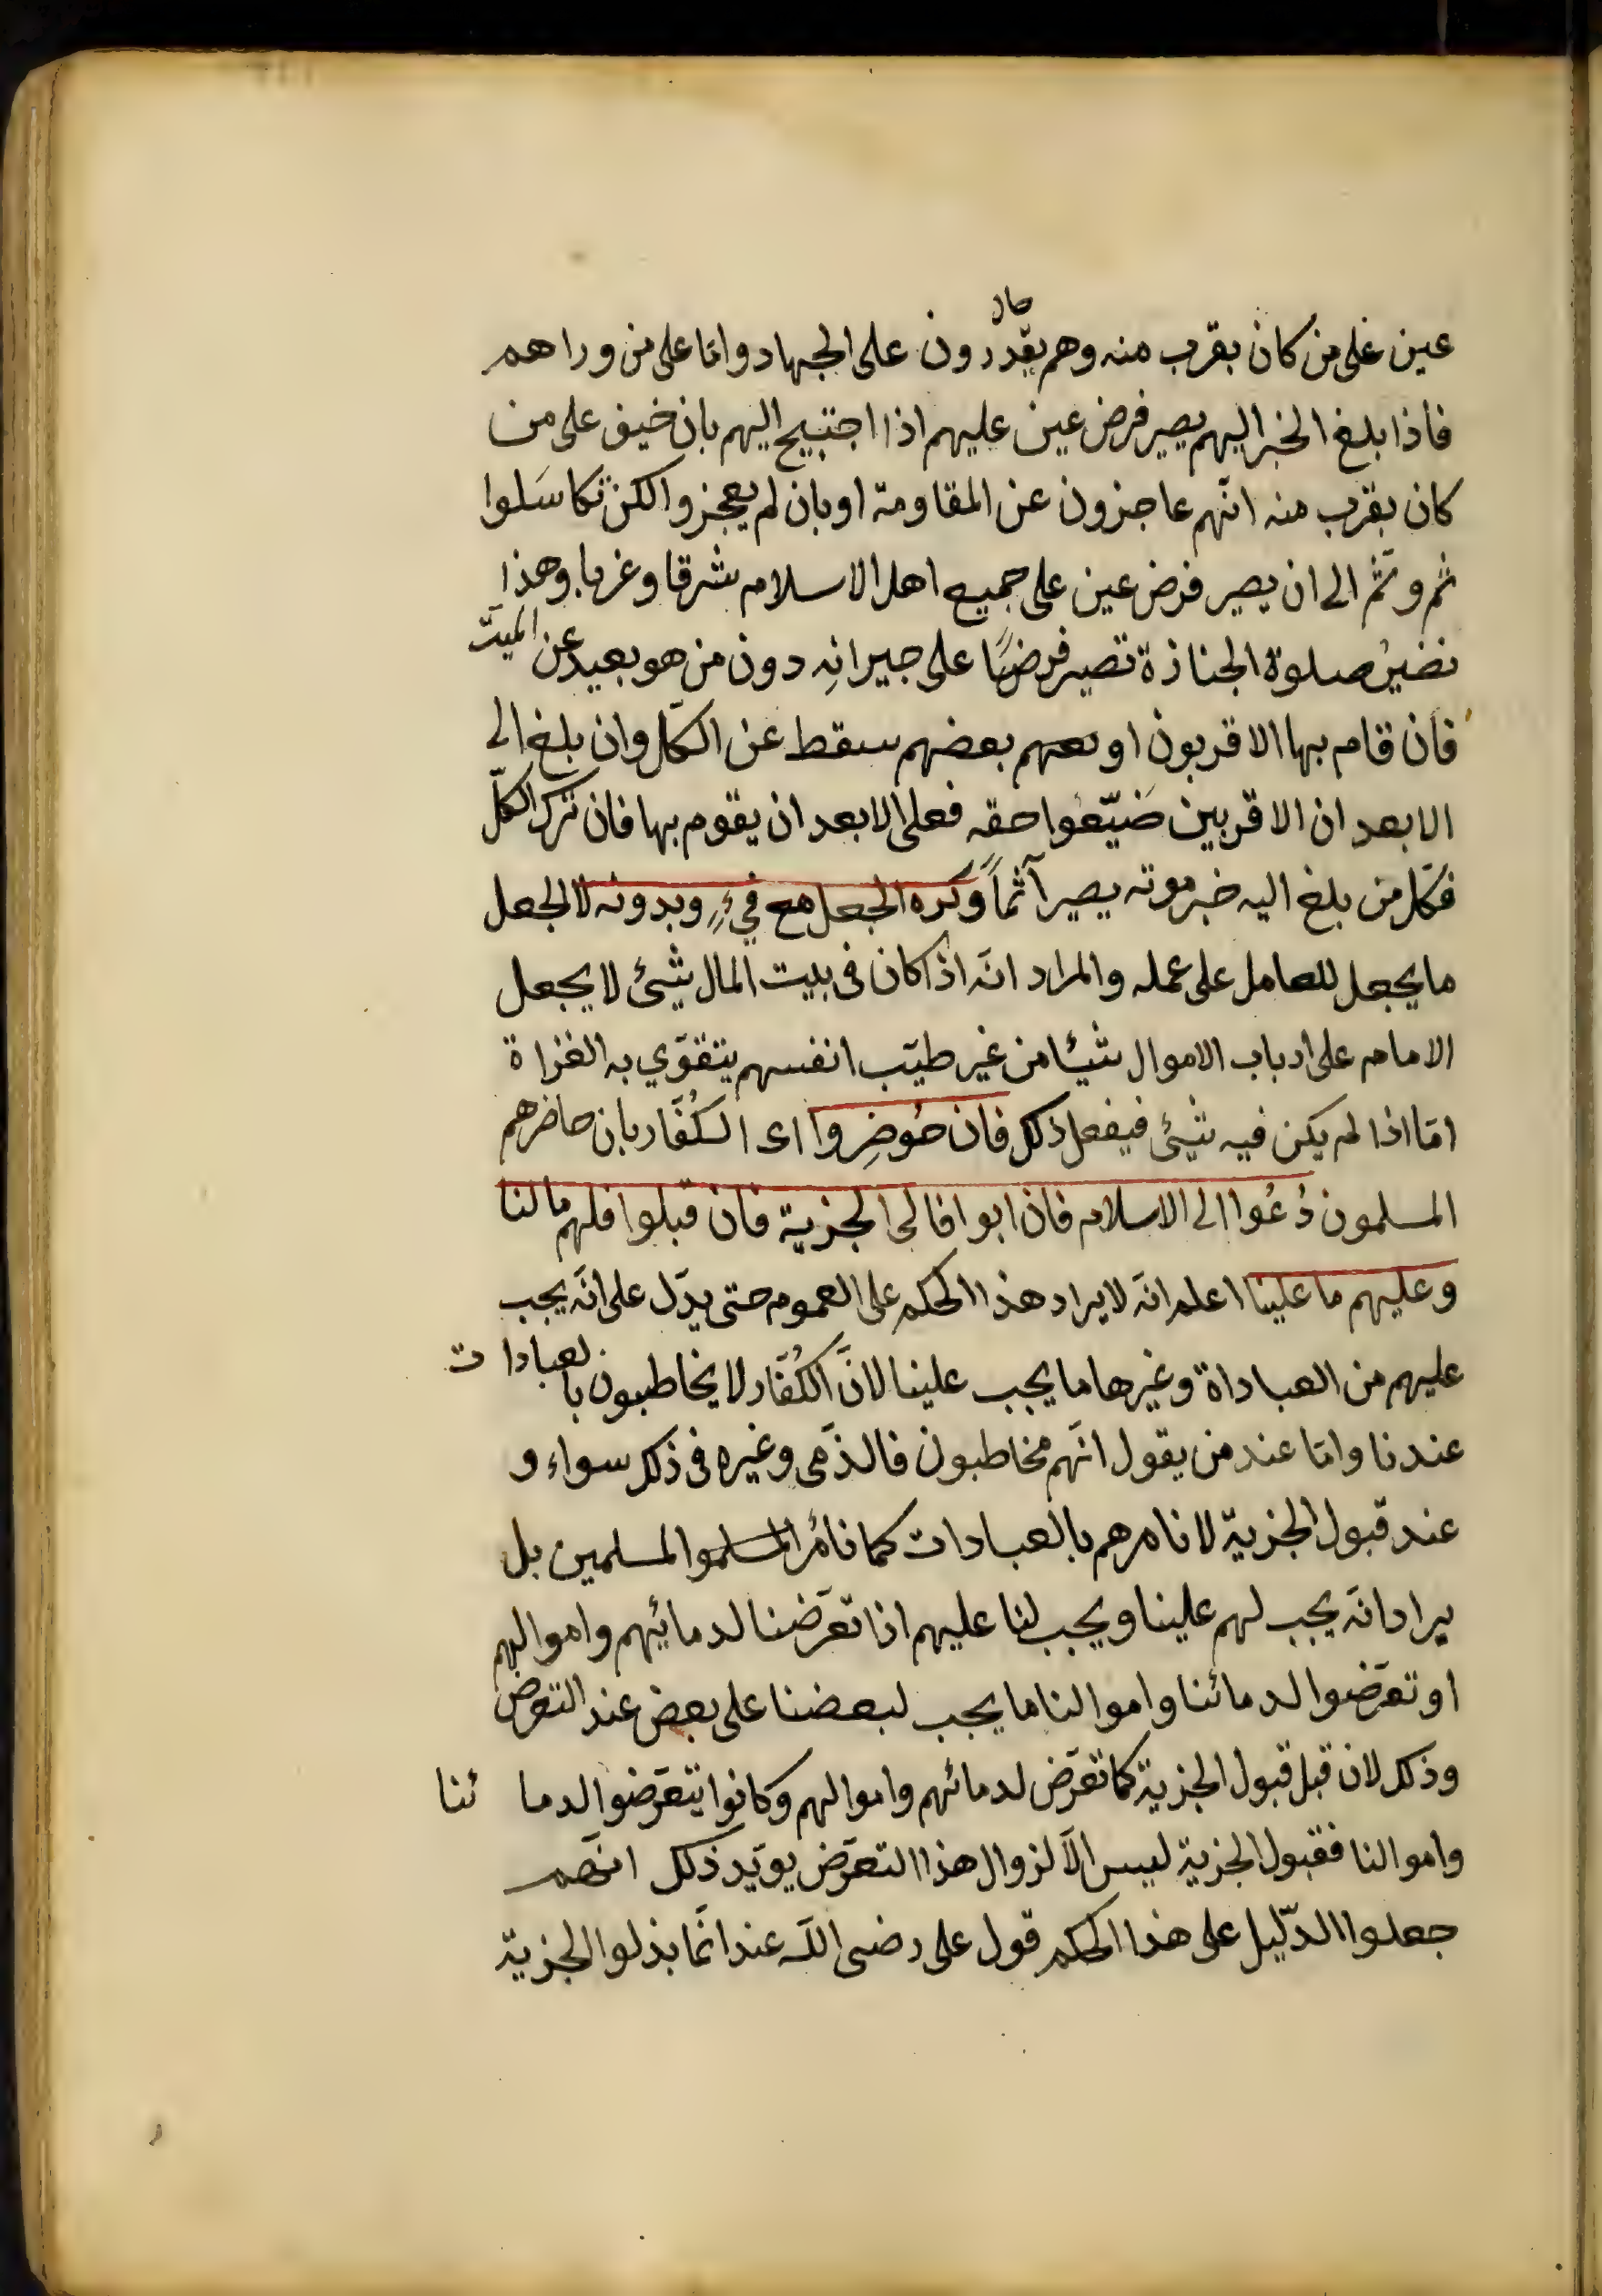 عين على من كان بقرب منه وهم يقدرون على الجهاد واما على من وراهم
فاذا بلغ الخبر اليهم يصير فرض عين عليهم اذا احتيج اليهم بان خيف على من
كان بقرب منه انهم عاجزون عن المقاومة او بان لم يعجزوا لكن تكاسَلوا
ثم وثم الى ان يصير فرض عين على جميع اهل الاسلام شرقا وغربا وهذا
نضيرُ صلوة الجنازة تصير فرضًا على جيرانِه دون من هو بعيد عن الميت
فان قام بها الاقربون او بعضهم سقط عن الكلّ وان بلغ الى
الابعد ان الاقربين ضَيّعُوا حقه فعلى الابعد ان يقوم بها فان ترك الكلّ
فكل من بلغ اليه خبر موته يصير آثماً وكره الجعل مع فيءٍ وبدونه لا الجعل
ما يجعل للعامل على عمله والمراد انّه اذا كان في بيت المال شيئ لا يجعل
الامام على ارباب الاموال شيئا من غير طيب انفسهم يتقوّي به الغزاة
امّا اذا لم يكن فيه شيئ فيفعل ذلك فان حُوضِروا اى الكُفّار بان حاضرهم
المسلمون دُعُوا الى الاسلام فان ابوا فالى الجزية فان قبلوا فلهم ما لنا
وعليهم ما علينا اعلم انّه لا يراد هذا الحكم على العموم حتى يدلّ على انّه يجب
عليهم من العباداة وغيرها ما يجب علينا لانَّ الكُفّار لا يخاطبون بالعبادات
عندنا وامّا عند من يقول انّهم مخاطبون فالذّمى وغيره فى ذلك سواء و
عند قبول الجزية لا نامرهم بالعبادات كما نامُر المسلموا المسلمين بل
يراد انّه يجب لهم علينا ويجب لنا عليهم اذا تعرّضنا لدمائيهم واموالهم
او تعرّضوا لدمائنا واموالنا ما يجب لبعضنا على بعض عند التعرض
وذلك لان قبل قبول الجزية كما تعرّض لدمائهم واموالهم وكانوا يتعرّضوا لدمائنا
واموالنا فقبول الجزية ليس الّا لزوال هذا التعرّض يويّد ذلك انّهم
جعلوا الدّليل على هذا الحكم قول على رضى اللّه عنه انّما بذلوا الجزية